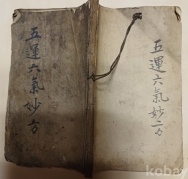 五運六氣妙方
五運六氣妙方
koba